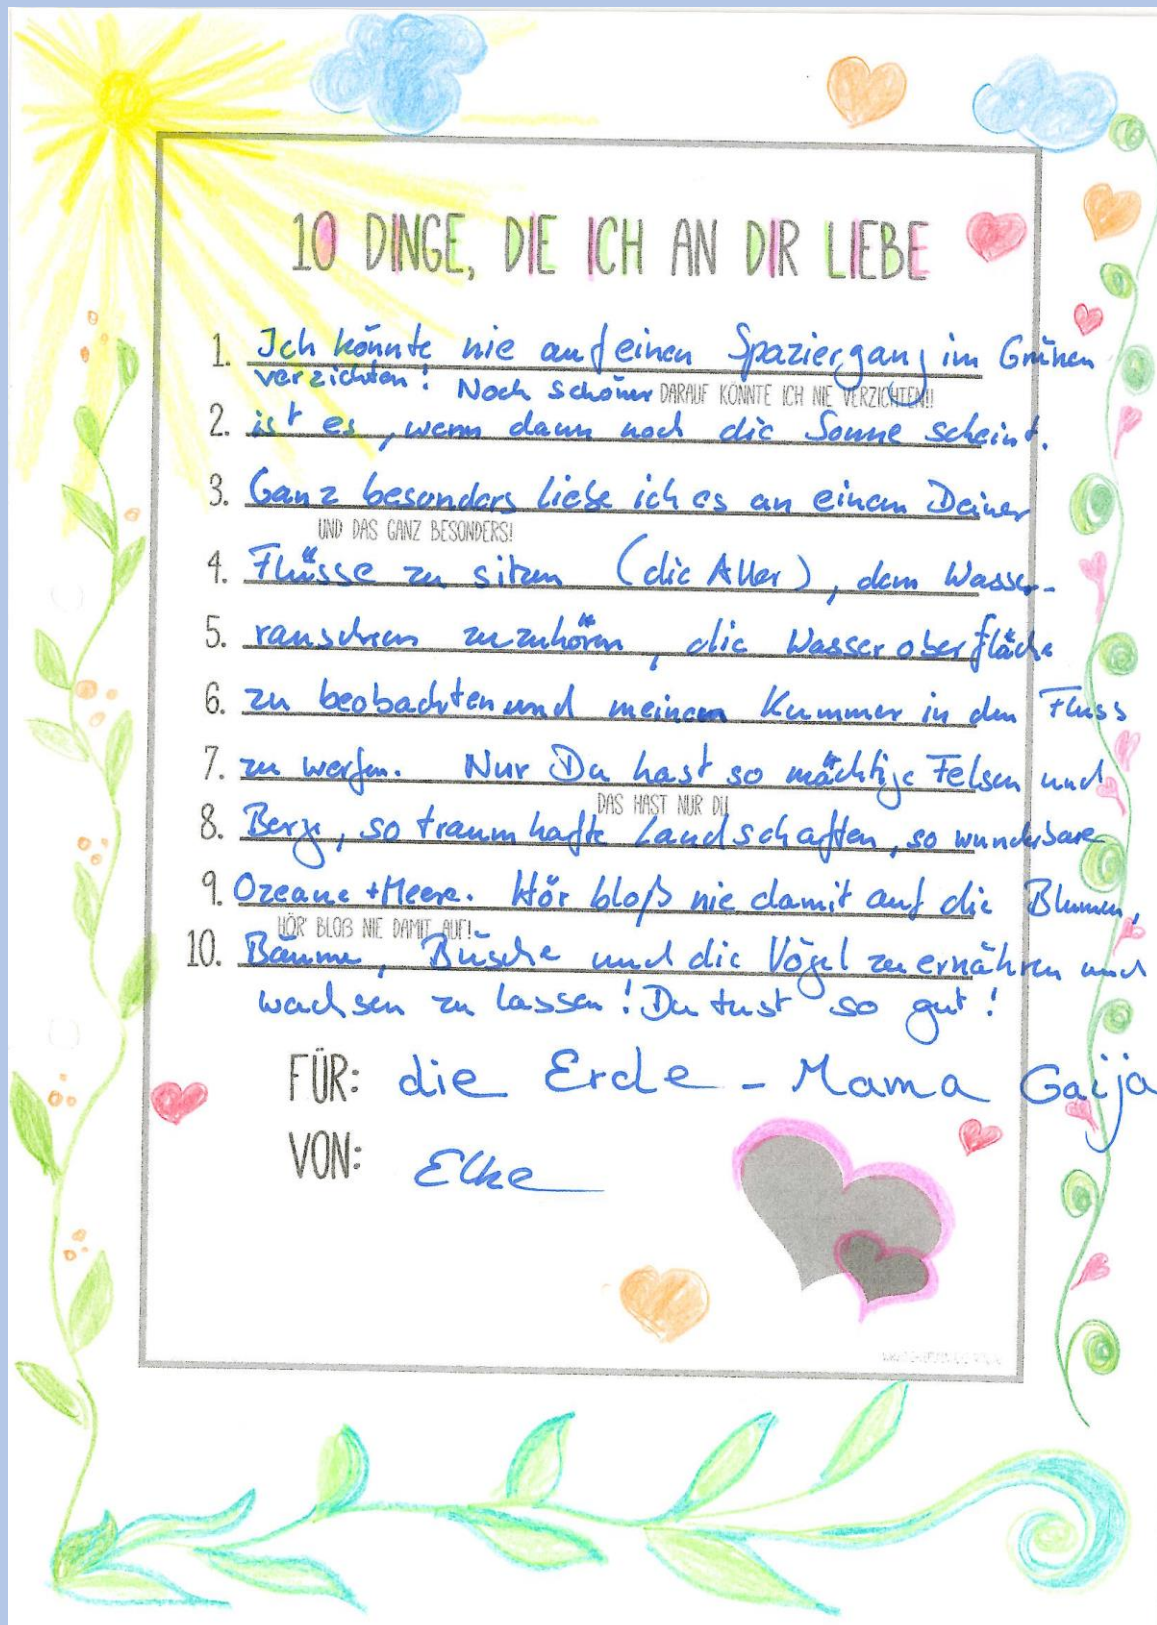 10 DINGE, DIE ICH AN DIR LIEBE
1. Ich könnte nie auf einen Spaziergang im Grünen
verzichten! Noch schöner DARAUF KÖNNTE ICH NIE VERZICHTEN!!
2. ist es, wenn dann noch die Sonne scheint.
3. Ganz besonders liebe ich es an einem Deiner
UND DAS GANZ BESONDERS!
4. Flüsse zu sitzen (die Aller), dem Wasser-
5. rauschen zuzuhören, die Wasseroberfläche
6. zu beobachten und meinen Kummer in den Fluss
7. zu werfen. Nur Du hast so mächtige Felsen und
DAS HAST NUR DU
8. Berge, so traumhafte Landschaften, so wunderbare
9. Ozeane + Meere. Hör bloß nie damit auf die Blumen,
HÖR' BLOß NIE DAMIT AUF!
10. Bäume, Büsche und die Vögel zu ernähren und
wachsen zu lassen! Du tust so gut!
FÜR: die Erde - Mama Gaija
VON: Elke